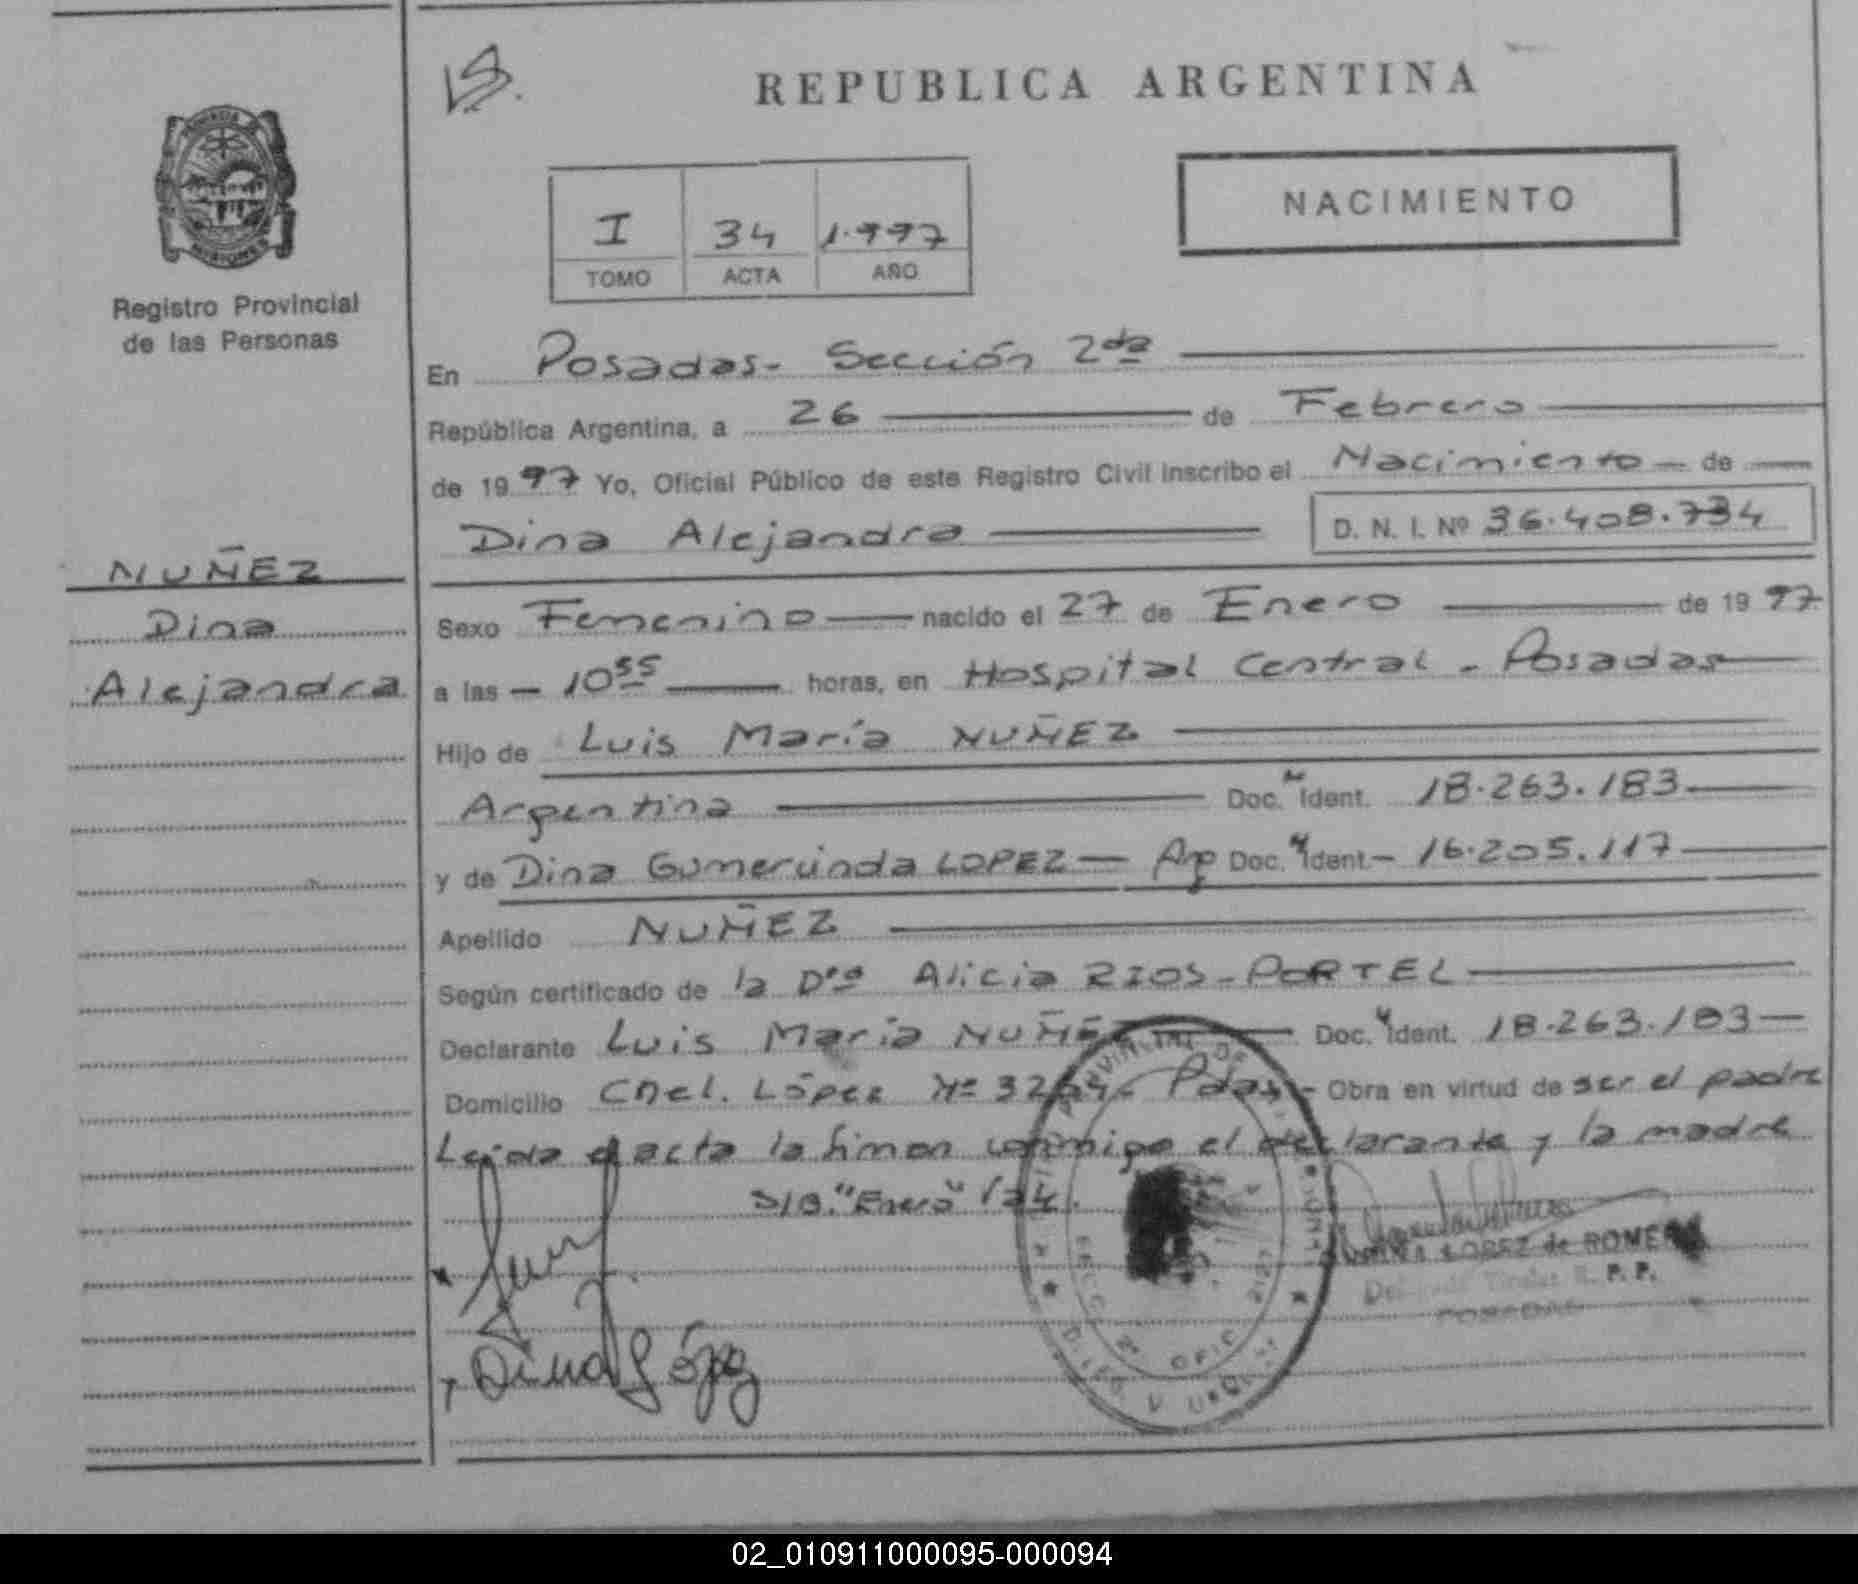 REPUBLICA ARGENTINA
PROVINCIA DE
MISIONES
Registro Provincial
de las Personas
NACIMIENTO
I 34 1.997
TOMO ACTA AÑO
En Posadas- Sección 2da
República Argentina, a 26 de Febrero
de 1997 Yo, Oficial Público de este Registro Civil Inscribo el Nacimiento de
Dina Alejandra D. N. I. Nº 36.408.734
NUÑEZ
Dina
Alejandra
Sexo Femenino nacido el 27 de Enero de 1997
a las - 10 55 horas, en Hospital Central - Posadas
Hijo de Luis María NUÑEZ
Argentina Doc. Ident. 18.263.183
y de Dina Gumercinda LOPEZ - Arg Doc. Ident.- 16.205.117
Apellido NUÑEZ
Según certificado de la Dra Alicia RIOS-PORTEL
Declarante Luis María NUÑEZ Doc. Ident. 18.263.183
Domicilio Cnel. López Nº - Pdas- Obra en virtud de ser el padre
Leida el acta la firman conmigo el declarante y la madre
S/B. "Enero" /34.
LOPEZ de ROMERO
Titular R. P. P.
POSADAS
Dina López
02_010911000095-000094